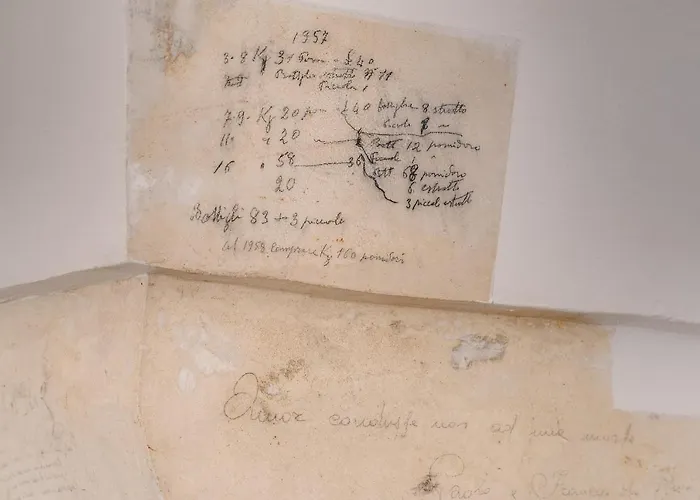 1957
3-8 Kg 34 Pom £ 40
Bottiglie estratto N° 11
Piccola 1
7-9- Kg 20 pom £ 40 bottiglie 8 estratto
11 " 20 Bott 12 pomidoro
16 " 58 36 Piccole 1
20 Bott 68 pomidoro
6 estratto
3 piccol estratt
Bottigli 83 + 3 piccole
al 1958 comprare Kg 160 pomidori
Amor condusse noi ad una morte
Paolo Francesca da